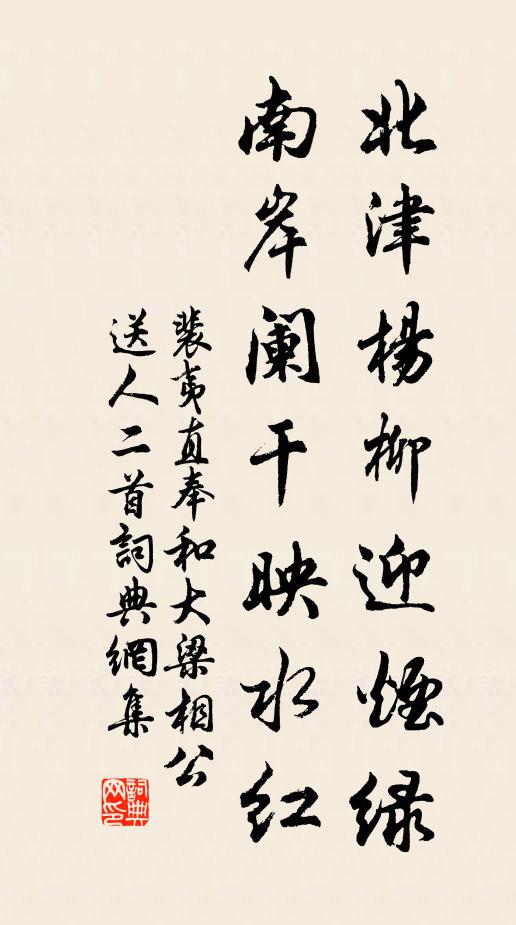 北津楊柳迎煙綠
南岸闌干映水紅
裴夷直奉和大梁相公
送人二首詞典網集
詞典網印